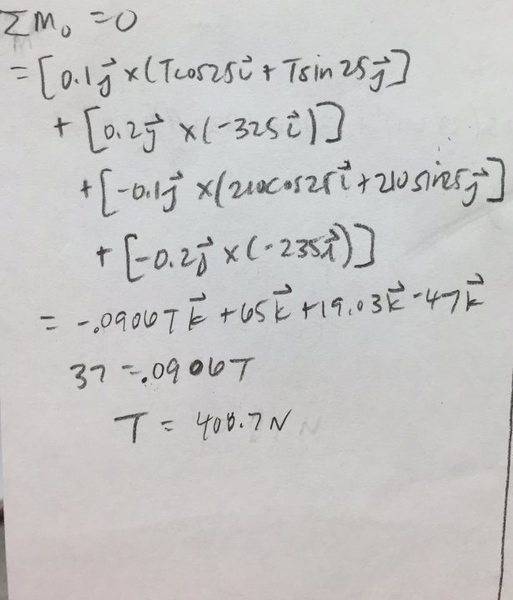 ΣM₀ = 0
= [0.1j⃗ × (Tcos25i⃗ + Tsin25j⃗)]
+ [0.2j⃗ × (-325i⃗)]
+ [-0.1j⃗ × (210cos25i⃗ + 210sin25j⃗)]
+ [-0.2j⃗ × (-235i⃗)]
= -.0906Tk⃗ + 65k⃗ + 19.03k⃗ - 47k⃗
37 = .0906T
T = 408.7N